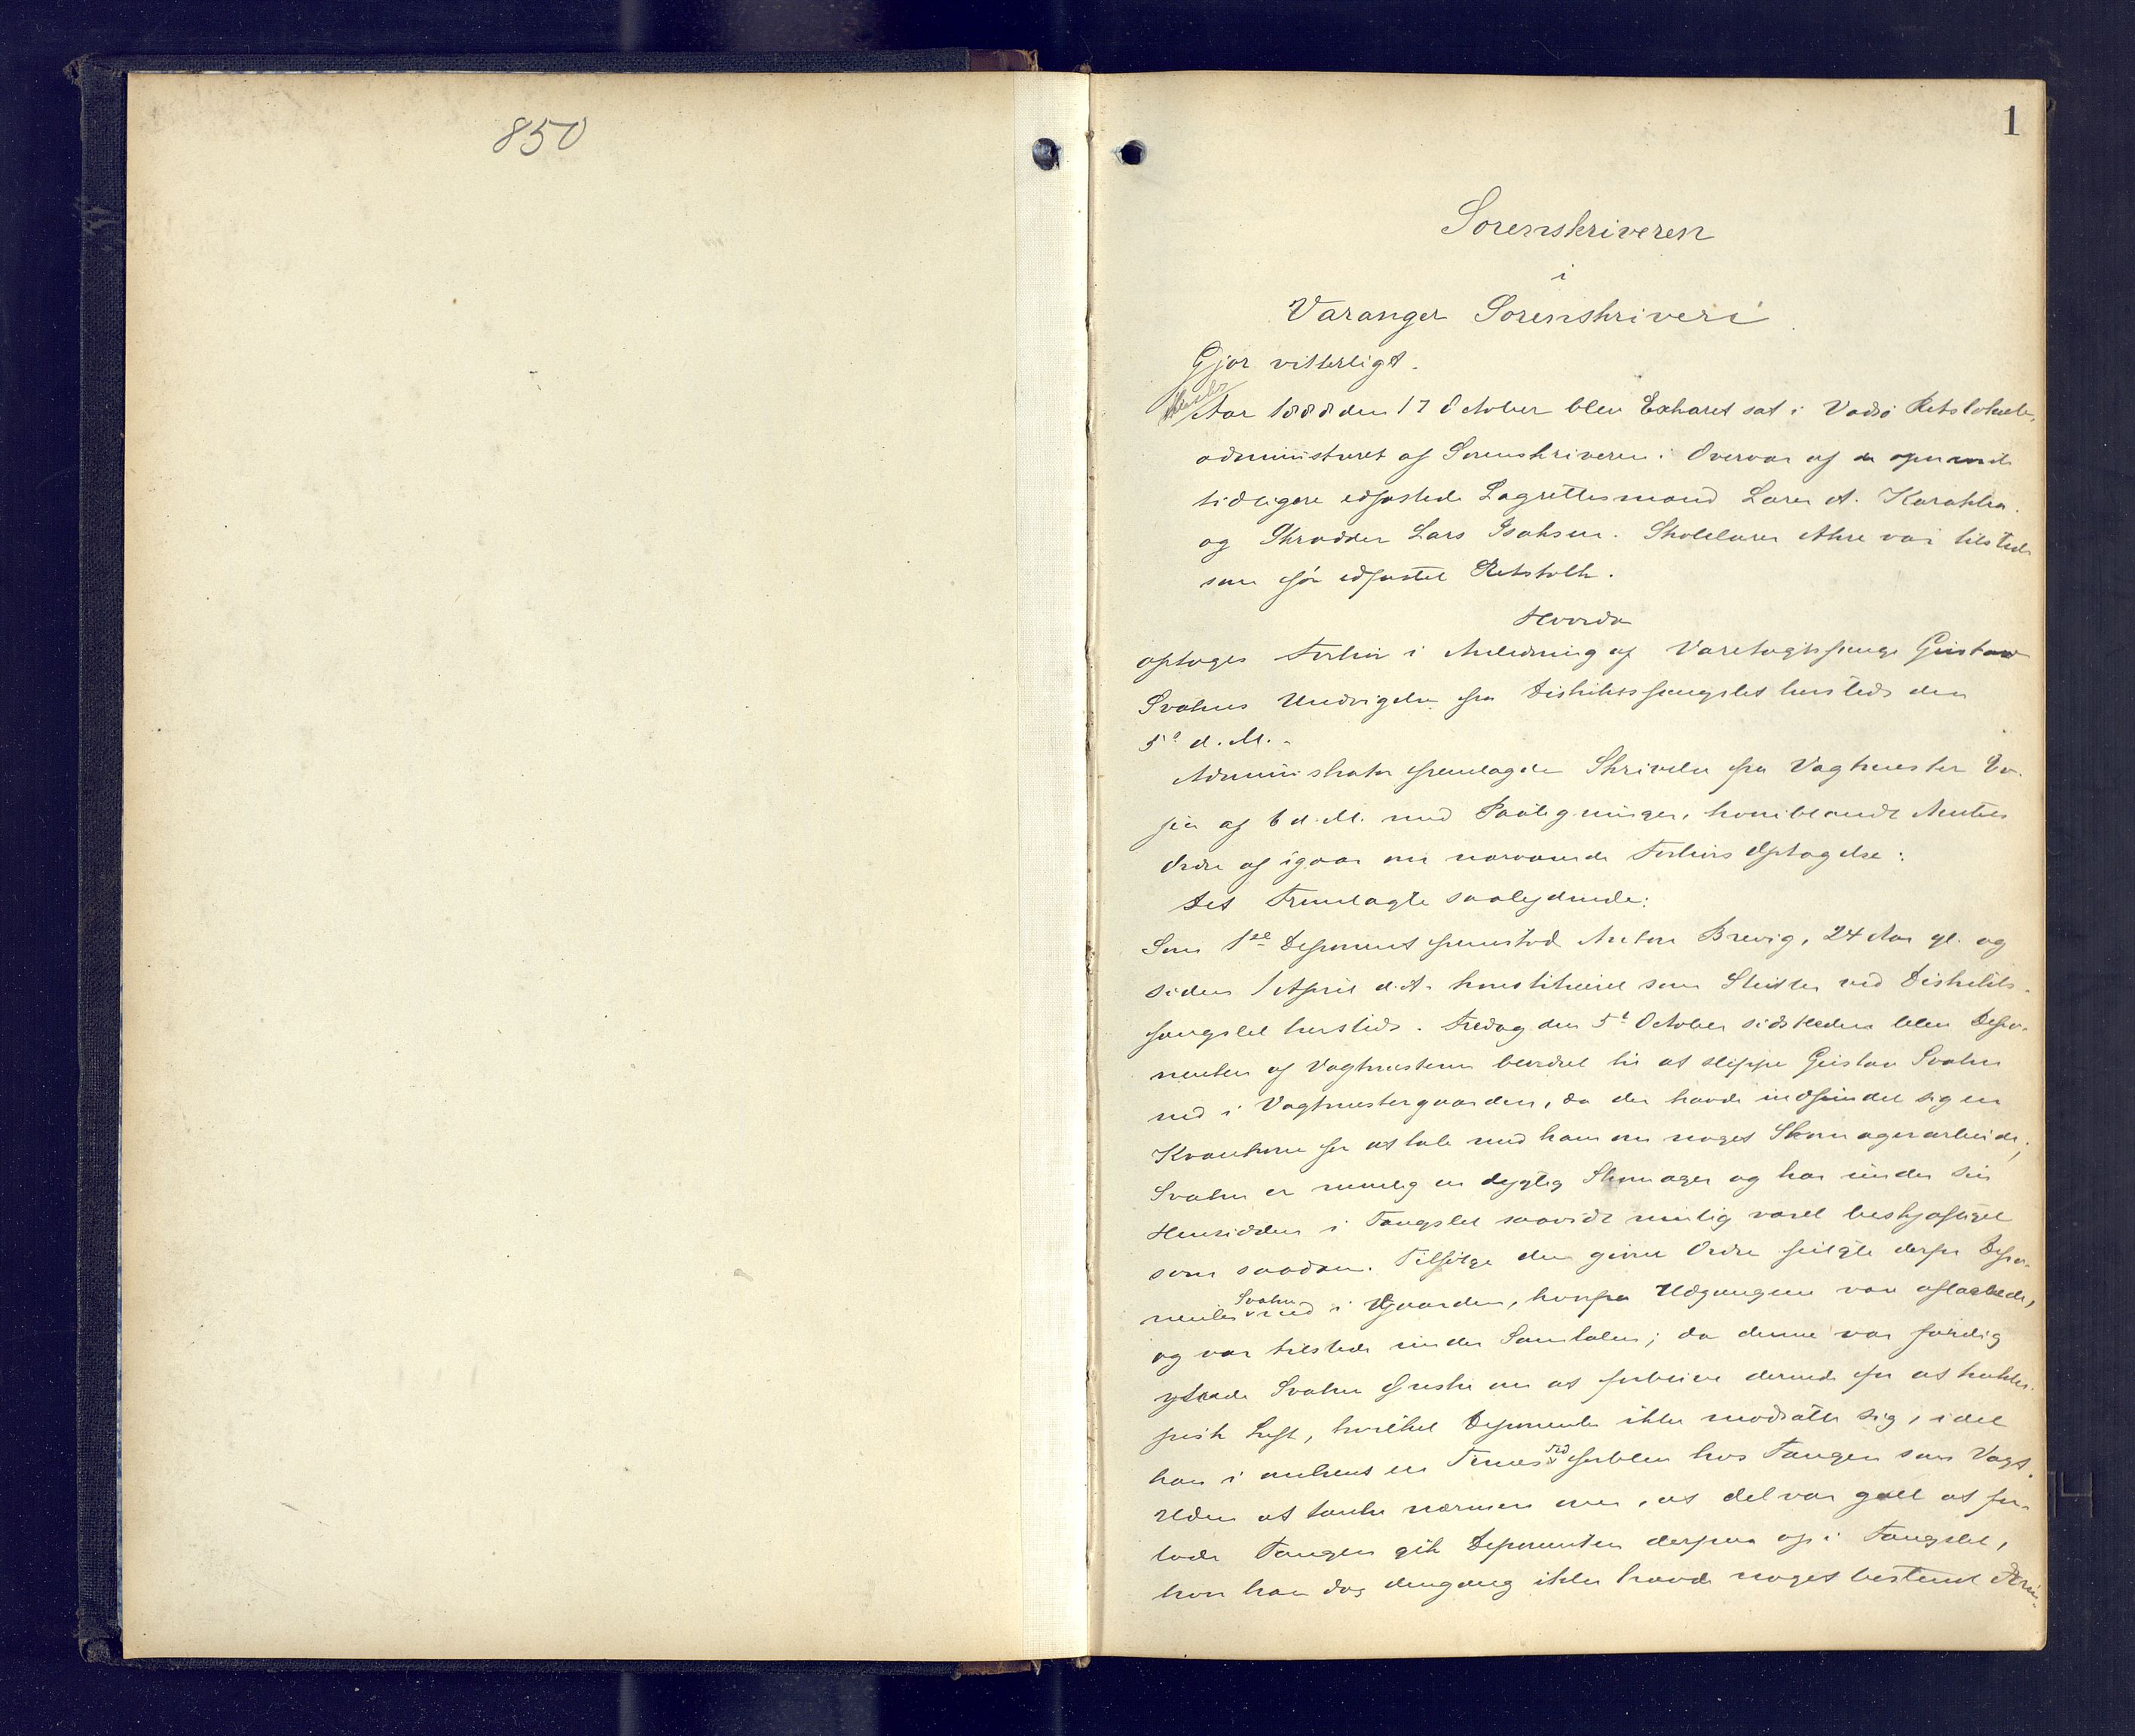 850
1
Sorenskriveren
i
Varanger Sorenskriveri
Gjør vitterligt.
Aar 1888 den 17 October blev Extraret sat i Vadsø Retslokale,
administreret af Sorenskriveren i Overvær af
tidligere edfæstede Lagrettesmænd Lares A. Karahka
og Skrædder Lars Isaksen. Skolelærer Akre var tilstede
som før edfæstet Retstolk.
Hvorda
optoges Forhør i Anledning af Varetægtsfange Gustav
Svahns Undvigelse fra Distriktsfængslet hersteds den
5te d. M.
Administrator fremlagde Skrivelse fra Vagtmester
af 6 d. M. med Paategninger, hvoriblandt Amtets
Ordre af igaar om nærværende Forhørs Optagelse:
Det Fremlagte saalydende:
Som 1ste Deponent fremstod Anton Brevig, 24 Aar gl. og
siden 1 April d. A. konstitueret som Slutter ved Distrikts-
fængslet hersteds. Fredag den 5te October sidstleden blev Depo-
nenten af Vagtmesteren beordret til at slippe Gustav Svahn
ned i Vagtmestergaarden, da der havde indfundet sig en
Kvæn for at tale med ham om noget Skomagerarbeide;
Svahn er nemlig en dygtig Skomager og har under sin
Hensidden i Fængslet saavidt mulig været beskjæftiget
som saadan. Tilfølge den givne Ordre fulgte derfor Depo-
nenten Svahn ned i Gaarden, hvorfra Udgangene var aflaasede,
og var tilstede under Samtalen; da denne var færdig
ytrede Svahn Ønske om at forblive dernede for at trække
frisk Luft, hvilket Deponenten ikke modsatte sig, idet
han i omtrent en Times Tid forblev hos Fangen som Vagt.
Uden at tænke nærmere over, at det var galt at for-
lade Fangen gik Deponenten derpaa op i Fængslet,
hvor han dog dengang ikke havde noget bestemt Ærin-